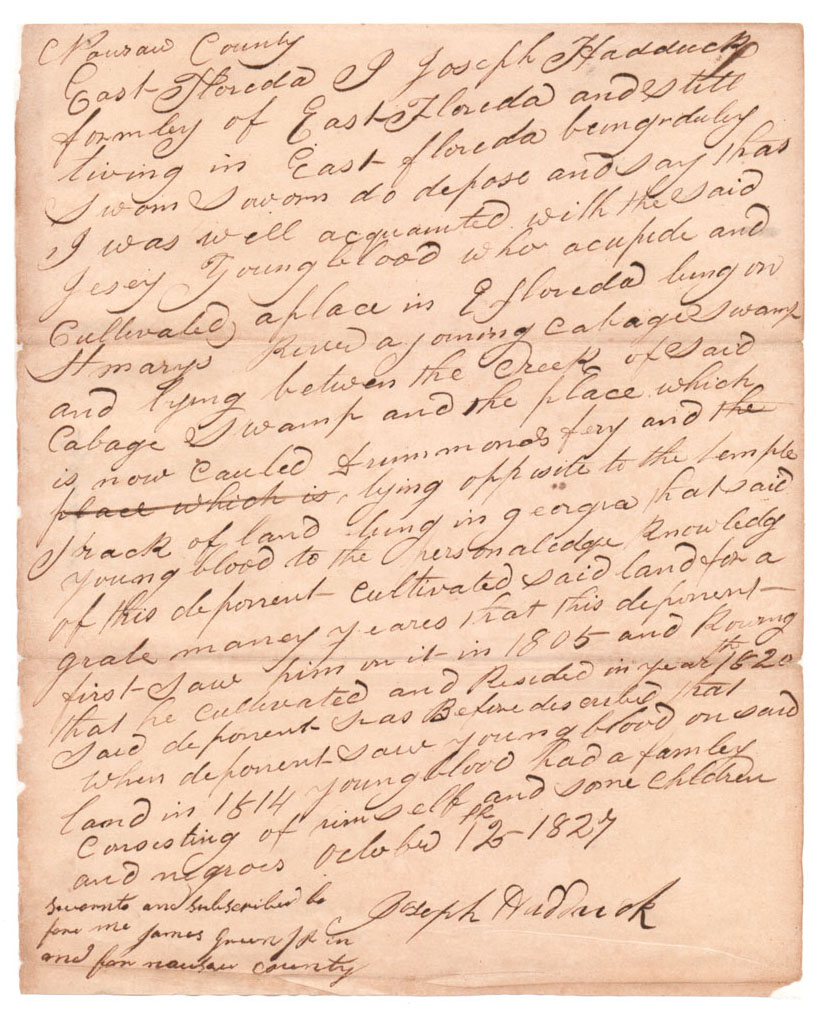 Nausaw County
East Floreda I Joseph Hadduck
formley of East Floreda and still
living in East floreda being duley
Sworn Savorn do depose and say that
I was well acquainted with the said
Jesey Youngblood who acupide and
Cultivated a place in E floreda lung on
St marys River a joining Cabage Swamp
and lying betwen the Creek of said
Cabage Swamp and the place which
is now Cauled Drummonds fery and the
place which is lying opposite to the temple
Track of land lung in georgia that said
young blood to the personaledge Knowledg
of this deponent Cultivated said land for a
grate maney yeares that this deponent
first saw him on it in 1805 and
that he Cultivated and Resided in year th 1820
said deponent seas Before described that
when deponent saw young blood on said
land in 1814 youngblood had a famley
Consisting of himself and some children
and negroes October 12th 1827
Sworn to and subscribed be
fore me James Green JP in
and for nausau County
Joseph Hadduck